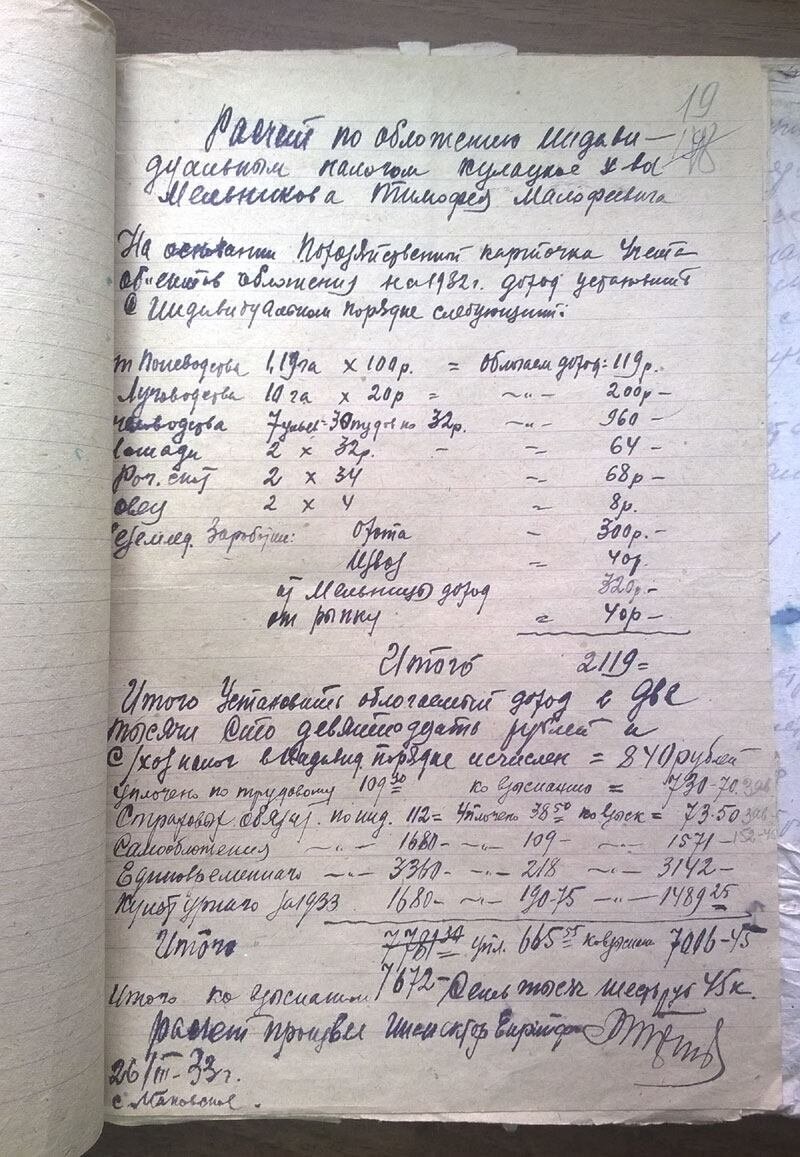 19
Расчет по обложению индиви-
дуальным налогом кулацкое х-во
Мельникова Тимофея Малофеевича
На основании Похозяйственной карточка учета
об"ектов обложения на 1932 г. доход установить
в индивидуальном порядке следующий:
т Полеводства 1,19 га х 100р. = Облогаем доход: 119р.
Луговодства 10 га х 20р = -"- 200р -
человодства 7 ульев - 30 пудов по 32р. -"- 960 -
лошади 2 х 32р. - = 64 -
Рог. скот 2 х 34 = 68р -
овец 2 х 4 = 8р.
Неземлед. Заработки: Охота = 300р. -
Извоз = 40р.
от Мельницы доход 320р. -
от рынку = 40р -
Итого 2119=
Итого Установить облогаемый доход в две
тысячи сто девятнодцать рублей и
с/хоз налог в индивид. порядке исчислен = 840 рублей
уплочено по трудовому 109 30 ко взысканию = 730-70
Страховых обязат. по инд. 112= Уплочено 38 50 ко взыск = 73-50
Самообложения -"- 1680- -"- 109 - -"- 1571 -
Единовременного -"- 3360- -"- 218 -"- 3142 -
Культурнаго за 1933 1680- -"- 190-75 -"- 1489 25
Итого 7781 упл. 665 55 ко взыскан 7006-45
7672-
Итого ко взыскании Семь тысяч шесть руб 45 к.
расчет произвел инспектор
26/III-33 г.
с. Маковское.